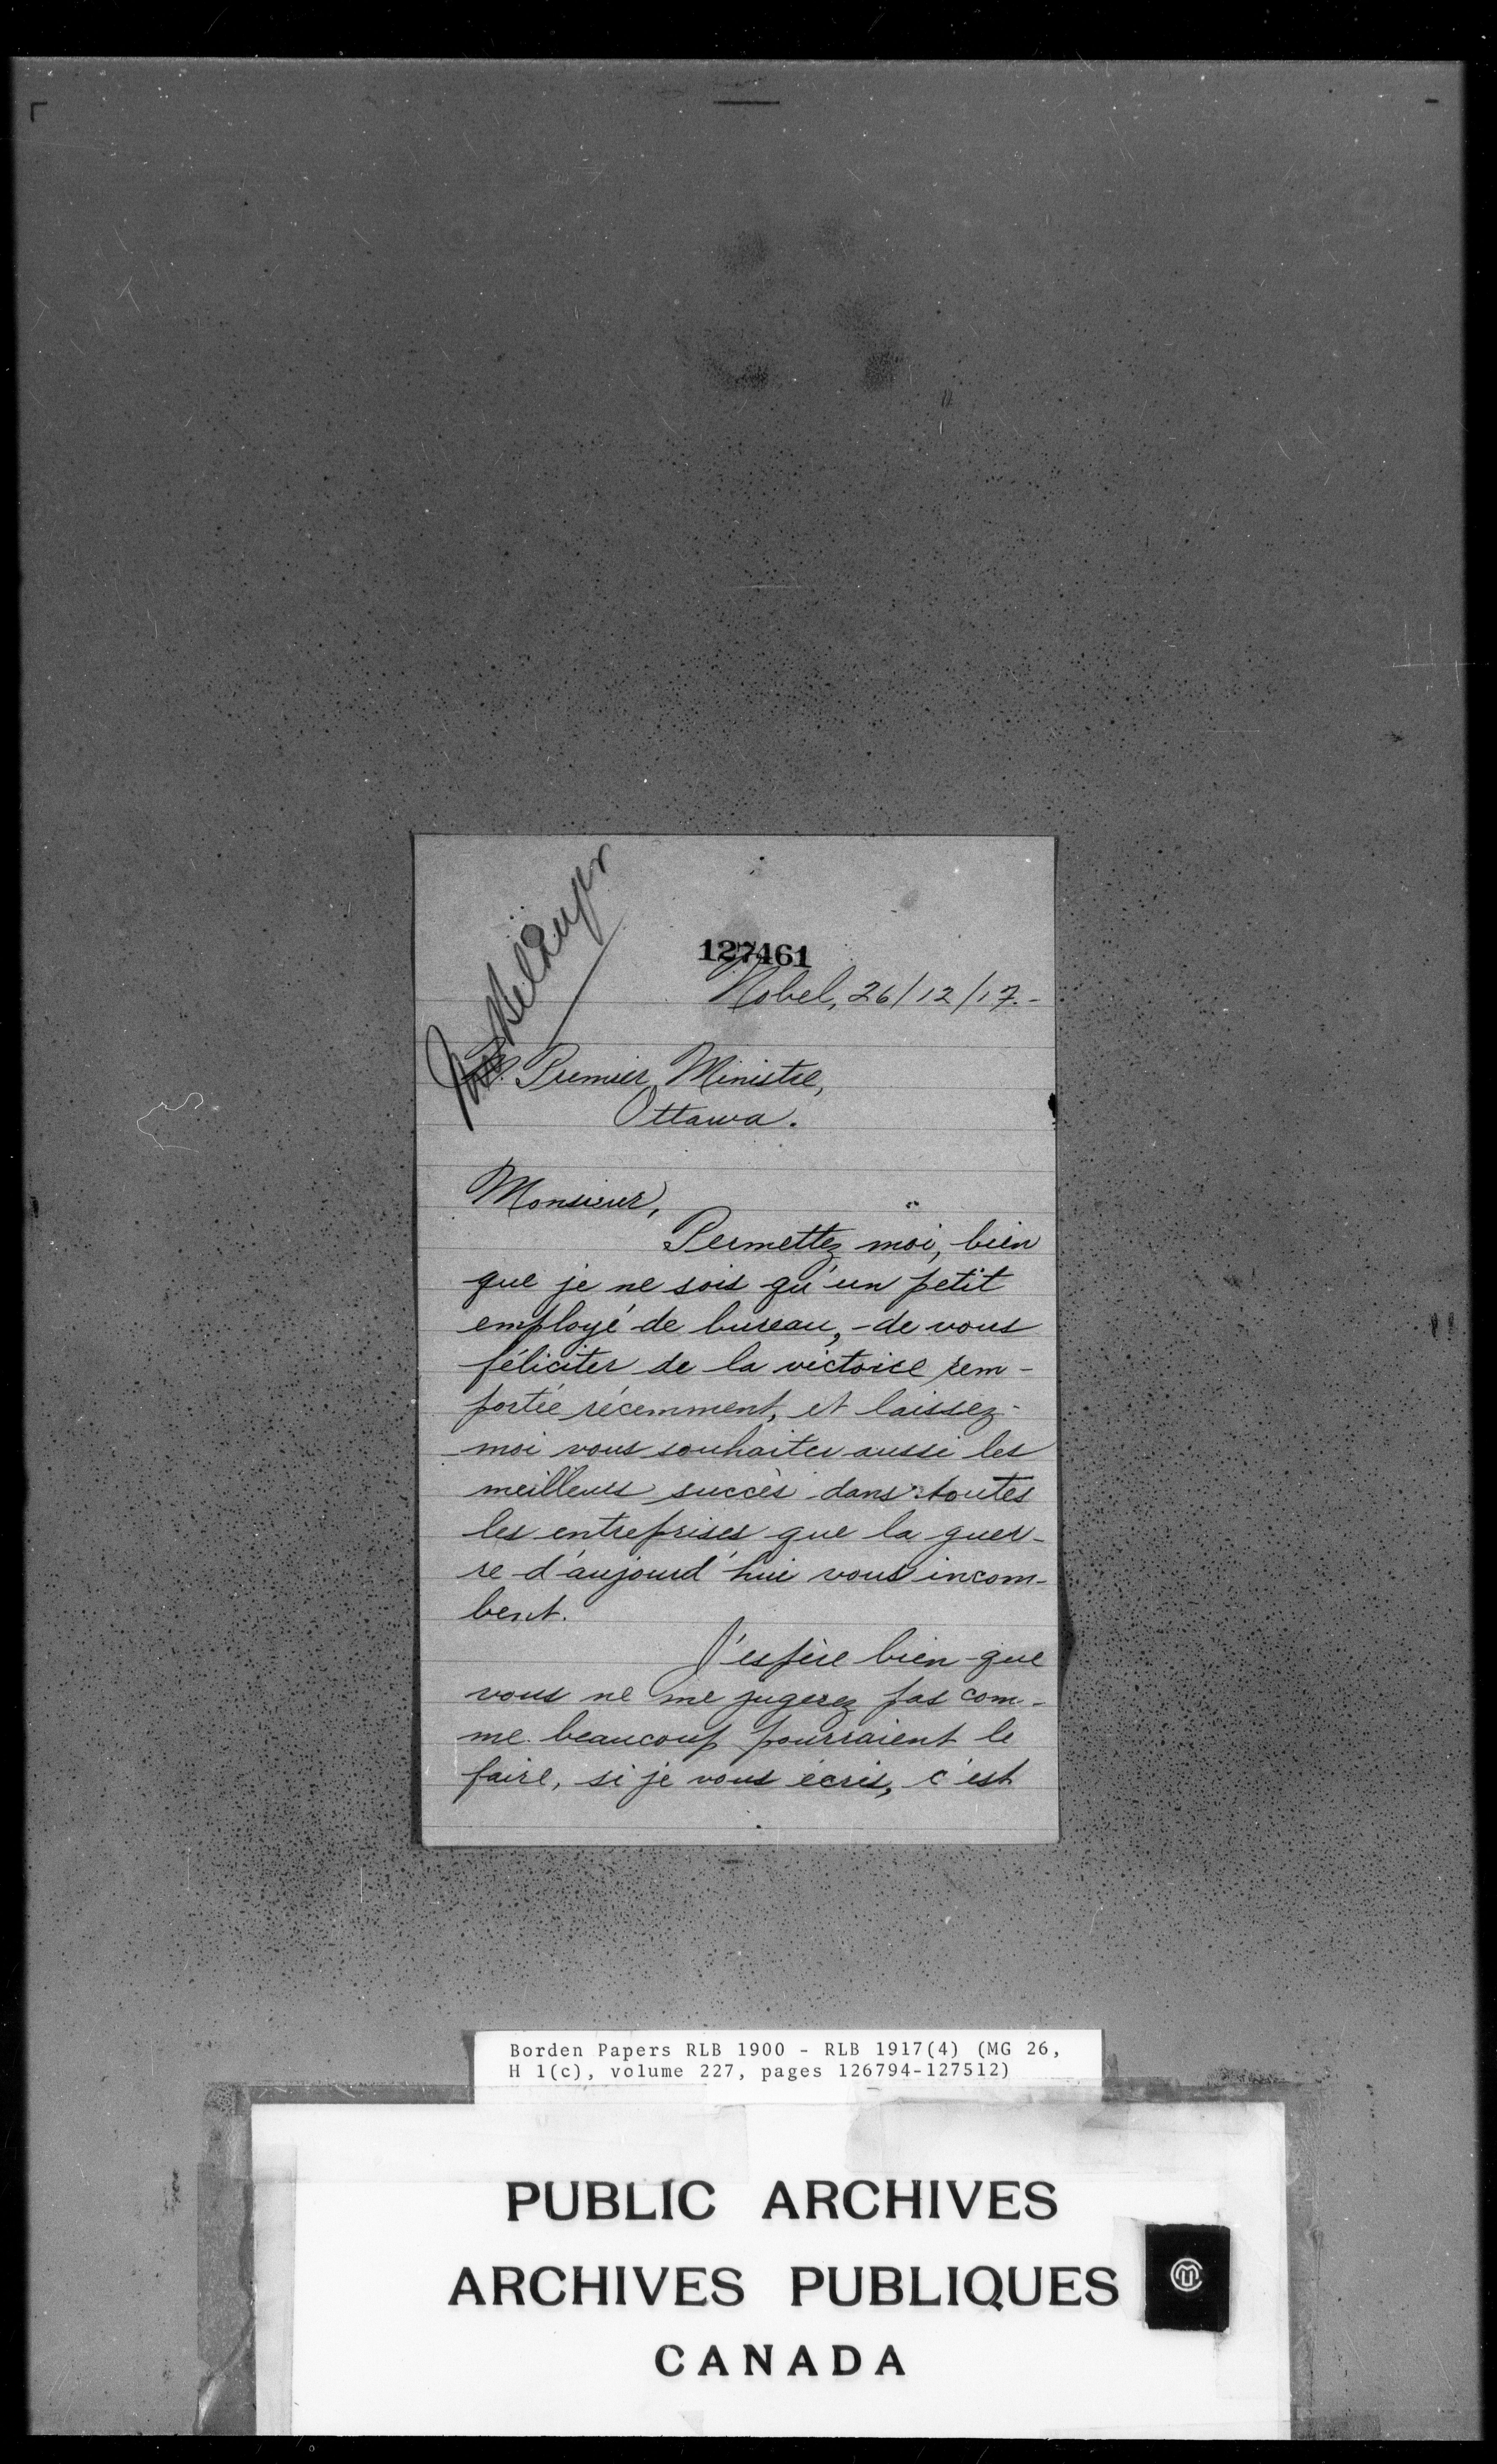 127461
Nobel, 26/12/17.-
M. Premier Ministre,
Ottawa.
Monsieur,
Permettez moi, bien
que je ne sois qu'un petit
employé de bureau, - de vous
féliciter de la victoire rem-
portée récemment, et laissez-
moi vous souhaiter aussi les
meilleurs succès dans toutes
les entreprises que la guer-
re d'aujourd'hui vous incom-
bent.
J'espère bien que
vous ne me jugerez pas com-
me beaucoup pourraient le
faire, si je vous écris, c'est
Borden Papers RLB 1900 - RLB 1917(4) (MG 26,
H 1(c), volume 227, pages 126794-127512)
PUBLIC ARCHIVES
ARCHIVES PUBLIQUES
CANADA